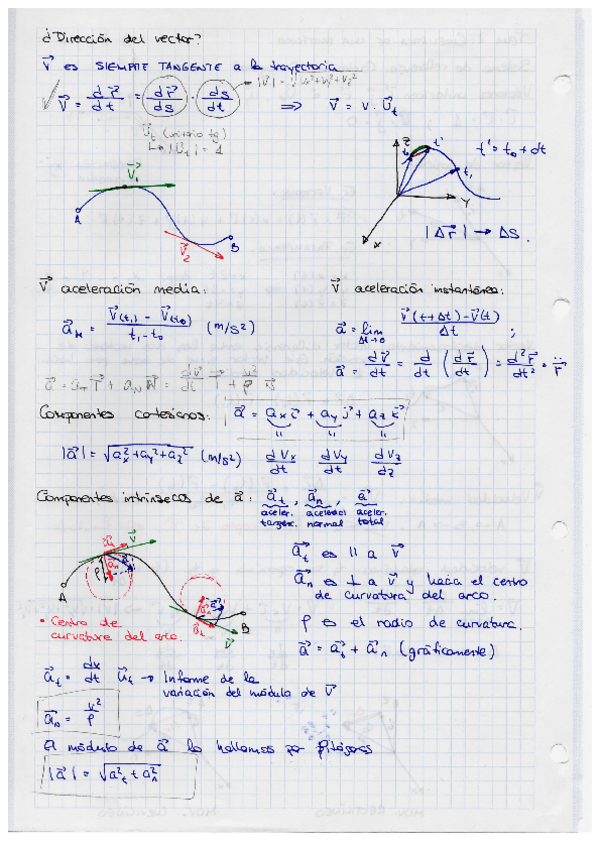 ¿Dirección del vector?
V⃗ es SIEMPRE TANGENTE a la trayectoria
V⃗ = dr⃗/dt = dr⃗/ds · ds/dt ⇒ V⃗ = v · U⃗t
|V⃗| =
U⃗t (unitario tg)
↳ |U⃗t| = 1
V⃗1
A
V⃗2
B
Z
t0 t' t1
Y
X
t' = t0 + dt
|Δr⃗| → ΔS.
V⃗ aceleración media:
a⃗M = (V⃗(t1) - V⃗(t0)) / (t1 - t0) (m/s²)
V⃗ aceleración instantánea:
a⃗ = lim Δt→0 (V⃗(t+Δt) - V⃗(t)) / Δt ;
a⃗ = dv⃗/dt = d/dt (dr⃗/dt) = d²r⃗/dt² = r̈⃗
a⃗ = aT T⃗ + aN N⃗ = dv/dt T⃗ + v²/ρ N⃗
Componentes cartesianas: a⃗ = ax i⃗ + ay j⃗ + az k⃗
|a⃗| = √(ax² + ay² + az²) (m/s²) dVx/dt dVy/dt dVz/dz
Componentes intrínsecos de a⃗: a⃗t, a⃗n, a⃗
aceler. tangen. aceleraci normal aceler. total
a⃗t es || a V⃗
a⃗n es ⊥ a V⃗ y hacia el centro
de curvatura del arco.
ρ es el radio de curvatura.
a⃗ = a⃗t + a⃗n (gráficamente)
a⃗t V⃗
ρ a⃗n a⃗
A
a⃗n a⃗
a⃗t B
V⃗
• Centro de
curvatura del arco.
a⃗t = dx/dt u⃗t → Informe de la
variación del módulo de V⃗
a⃗n = v²/ρ
El módulo de a⃗ lo hallamos por Pitágoras
|a⃗| = √(a²t + a²n)